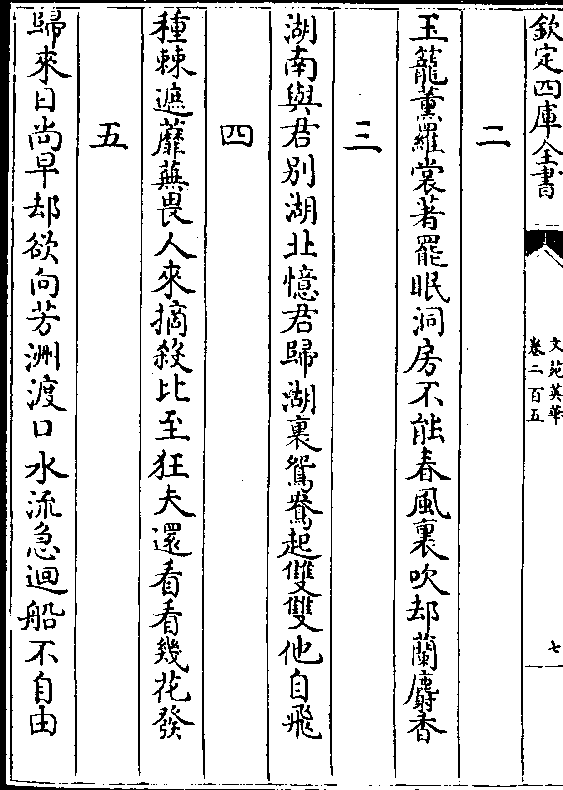 欽定四庫全書
文苑英華
卷二百五
七
二
玉籠薰羅裳著罷眠洞房不能春風裏吹却蘭麝香
三
湖南與君別湖北憶君歸湖裏鴛鴦起雙雙他自飛
四
種棘遮蘼蕪畏人來摘殺比至狂夫還看看幾花發
五
歸來日尚早却欲向芳洲渡口水流急迴船不自由